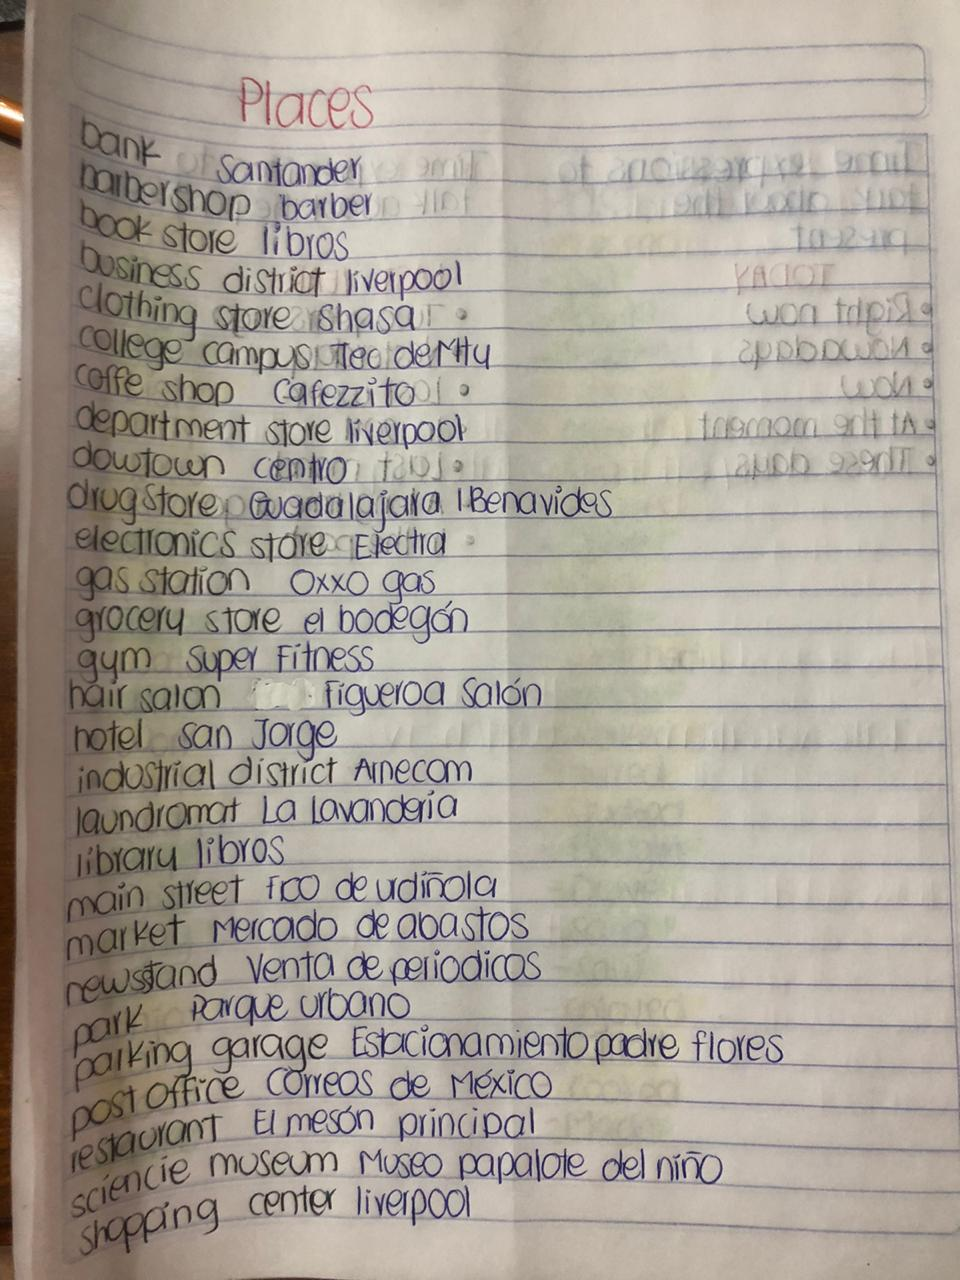 Places
bank Santander
barbershop barber
book store libros
business district liverpool
clothing store shasa
college campus Tec de Mty
coffe shop Cafezzito
department store liverpool
dowtown centro
drugstore Guadalajara | Benavides
electronics store Electra
gas station Oxxo gas
grocery store el bodegón
gym super Fitness
hair salon Figueroa Salón
hotel san Jorge
industrial district Arnecom
laundromat La Lavandería
library libros
main street Fco de urdiñola
market Mercado de abastos
newsstand Venta de periodicos
park Parque urbano
parking garage Estacionamiento padre flores
post office Correos de México
restaurant El mesón principal
sciencie museum Museo papalote del niño
shopping center liverpool